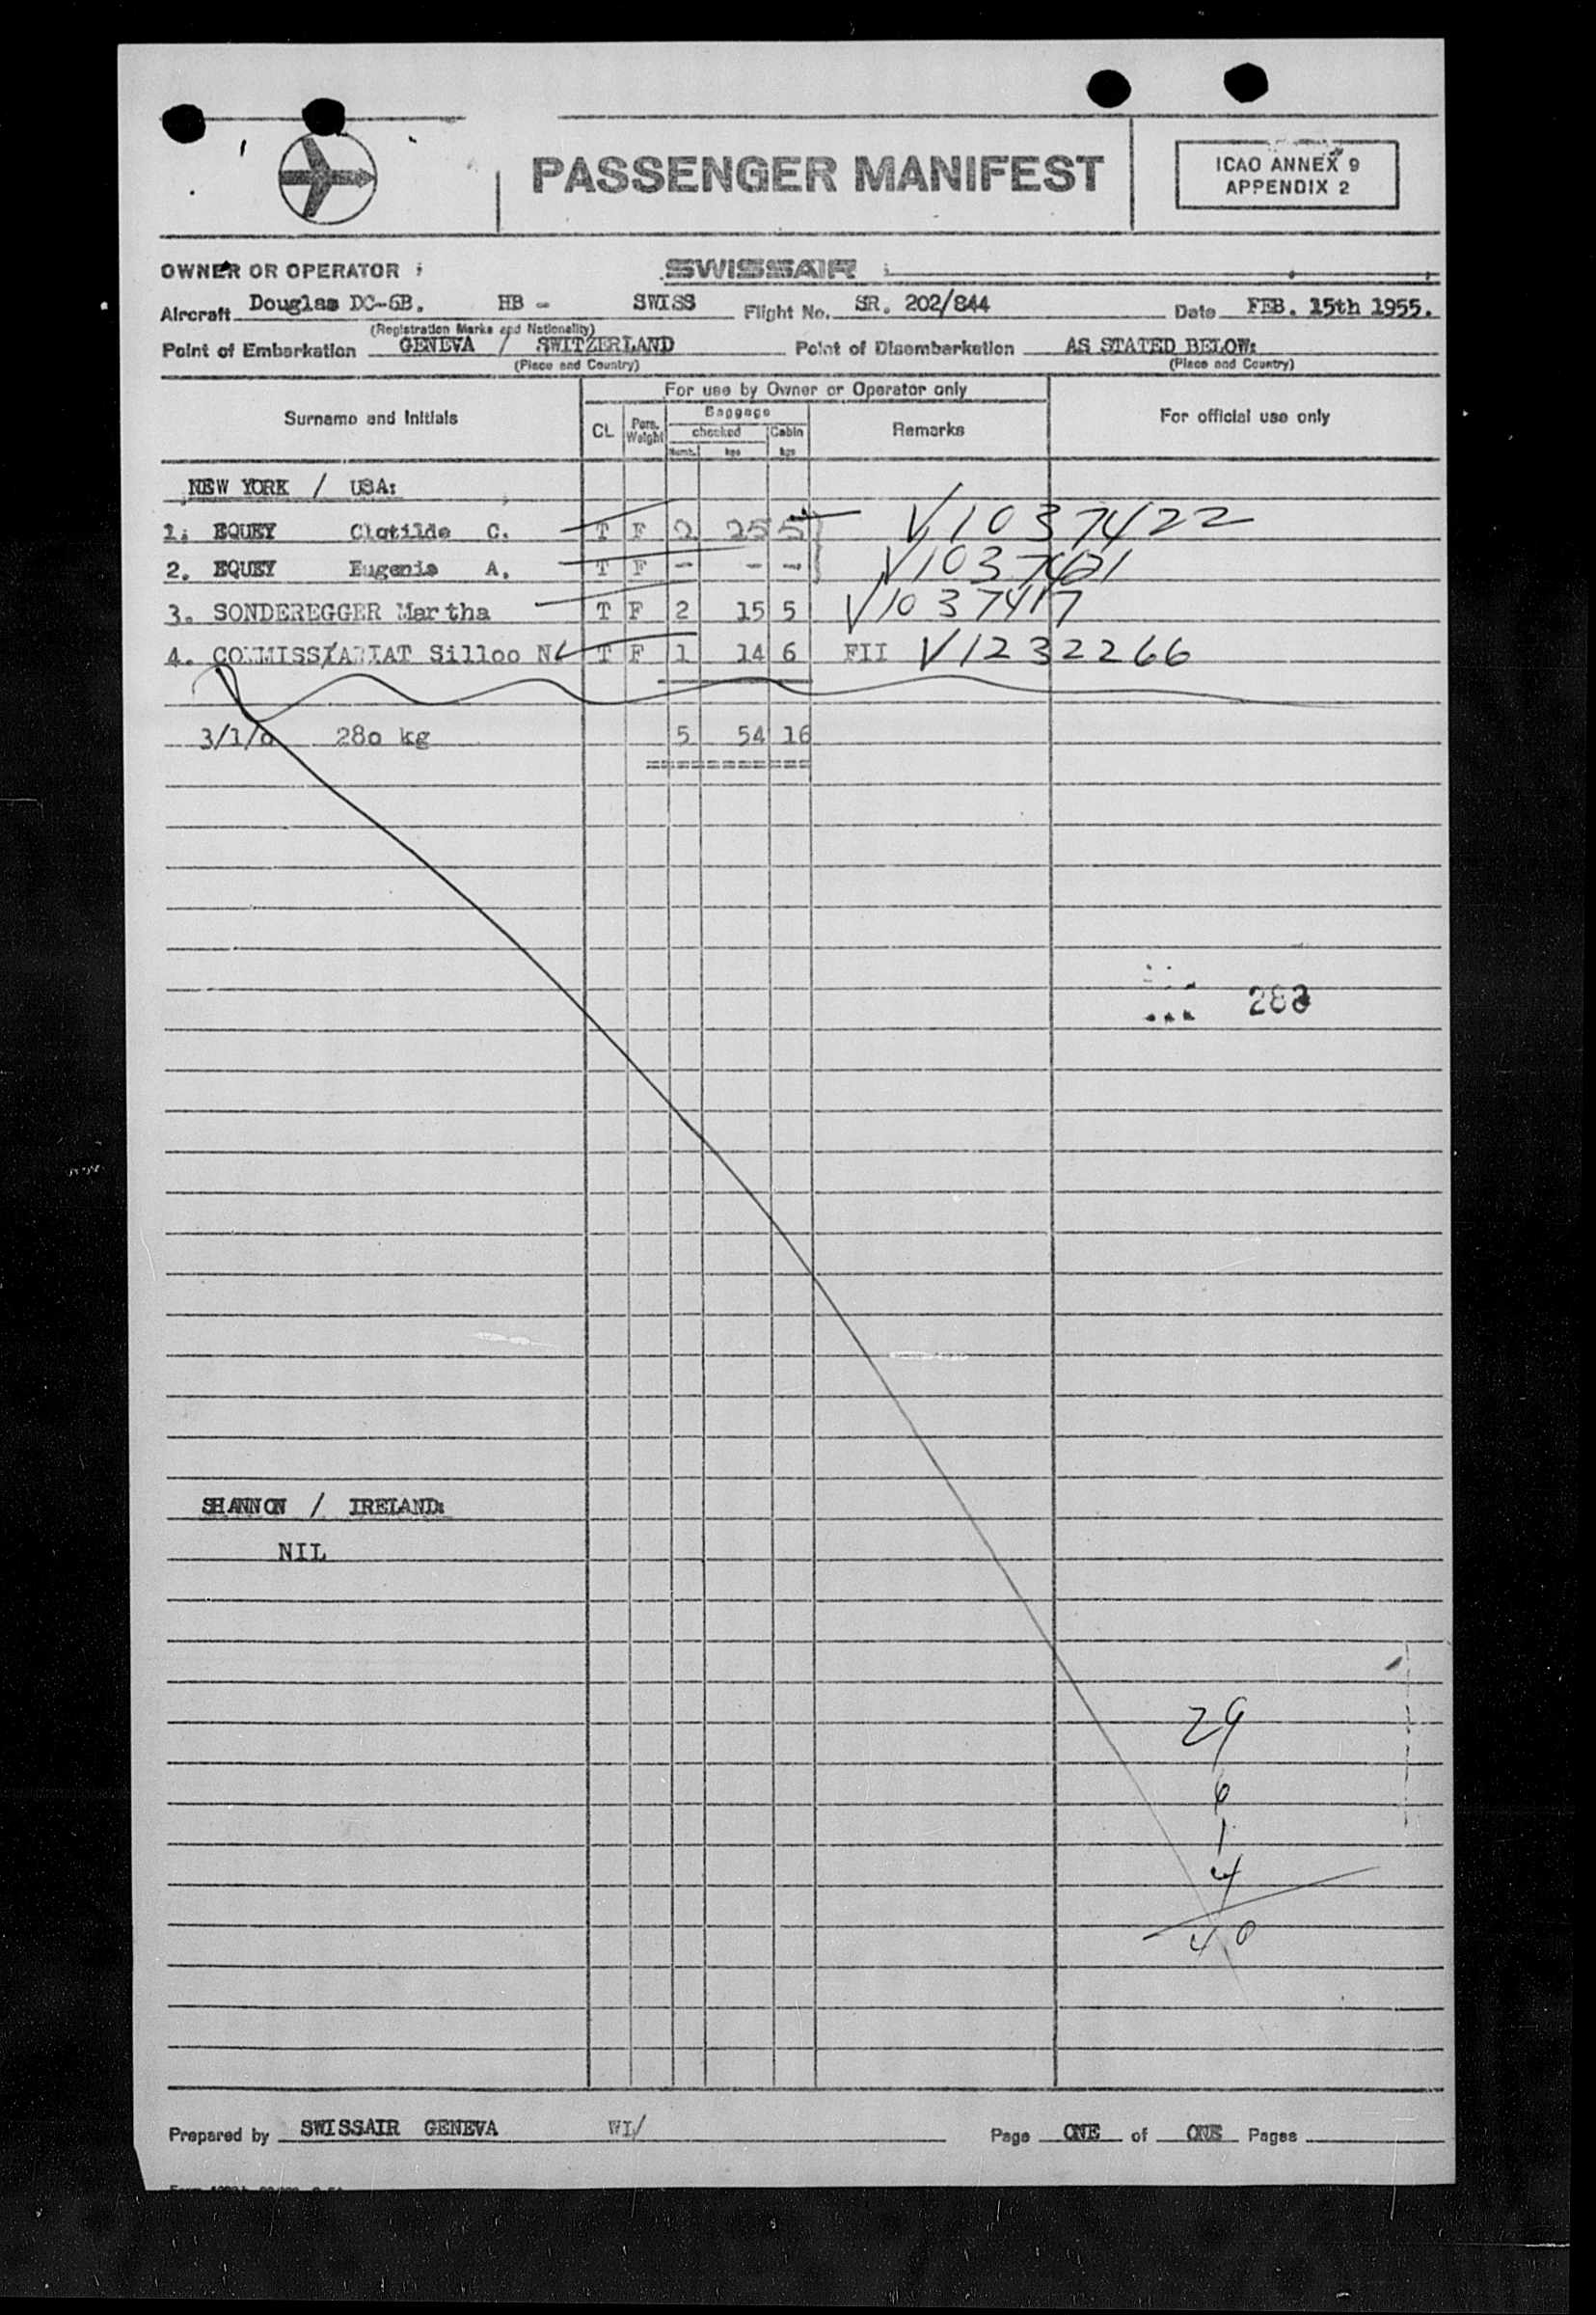 PASSENGER MANIFEST
ICAO ANNEX 9
APPENDIX 2
OWNER OR OPERATOR SWISSAIR
Aircraft Douglas DC-6B. HB - SWISS Flight No. SR. 202/844 Date FEB. 15th 1955.
(Registration Marks and Nationality)
Point of Embarkation GENEVA / SWITZERLAND Point of Disembarkation AS STATED BELOW:
(Place and Country) (Place and Country)
For use by Owner or Operator only
Surname and Initials CL Pers. Weight Baggage checked Cabin Remarks For official use only
Numb. kgs kgs
NEW YORK / USA:
1. EQUEY Clotilde C. T F 2 25 5 V1037422
2. EQUEY Eugenie A. T F - - - V1037421
3. SONDEREGGER Martha T F 2 15 5 V1037417
4. COMMISSARIAT Silloo N T F 1 14 6 FII V1232266
3/1/o 28o kg 5 54 16
==========
SHANNON / IRELAND:
NIL
29
6
1
4
40
Prepared by SWISSAIR GENEVA WI/ Page ONE of ONE Pages